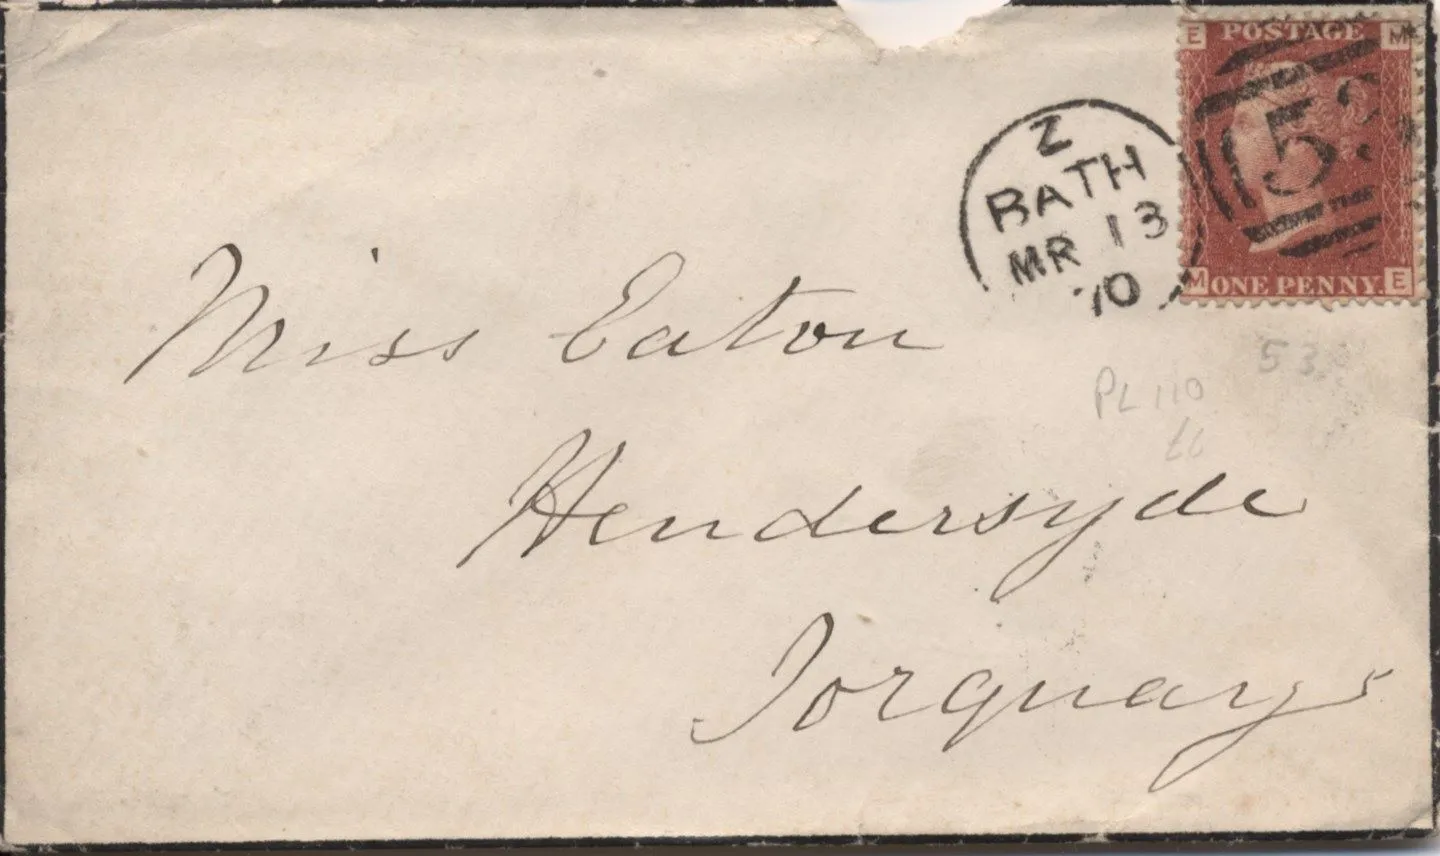 E POSTAGE M
53
M ONE PENNY. E
Z
BATH
MR 13
70
Miss Eaton
Hendersyde
Torquay
53
PL 110